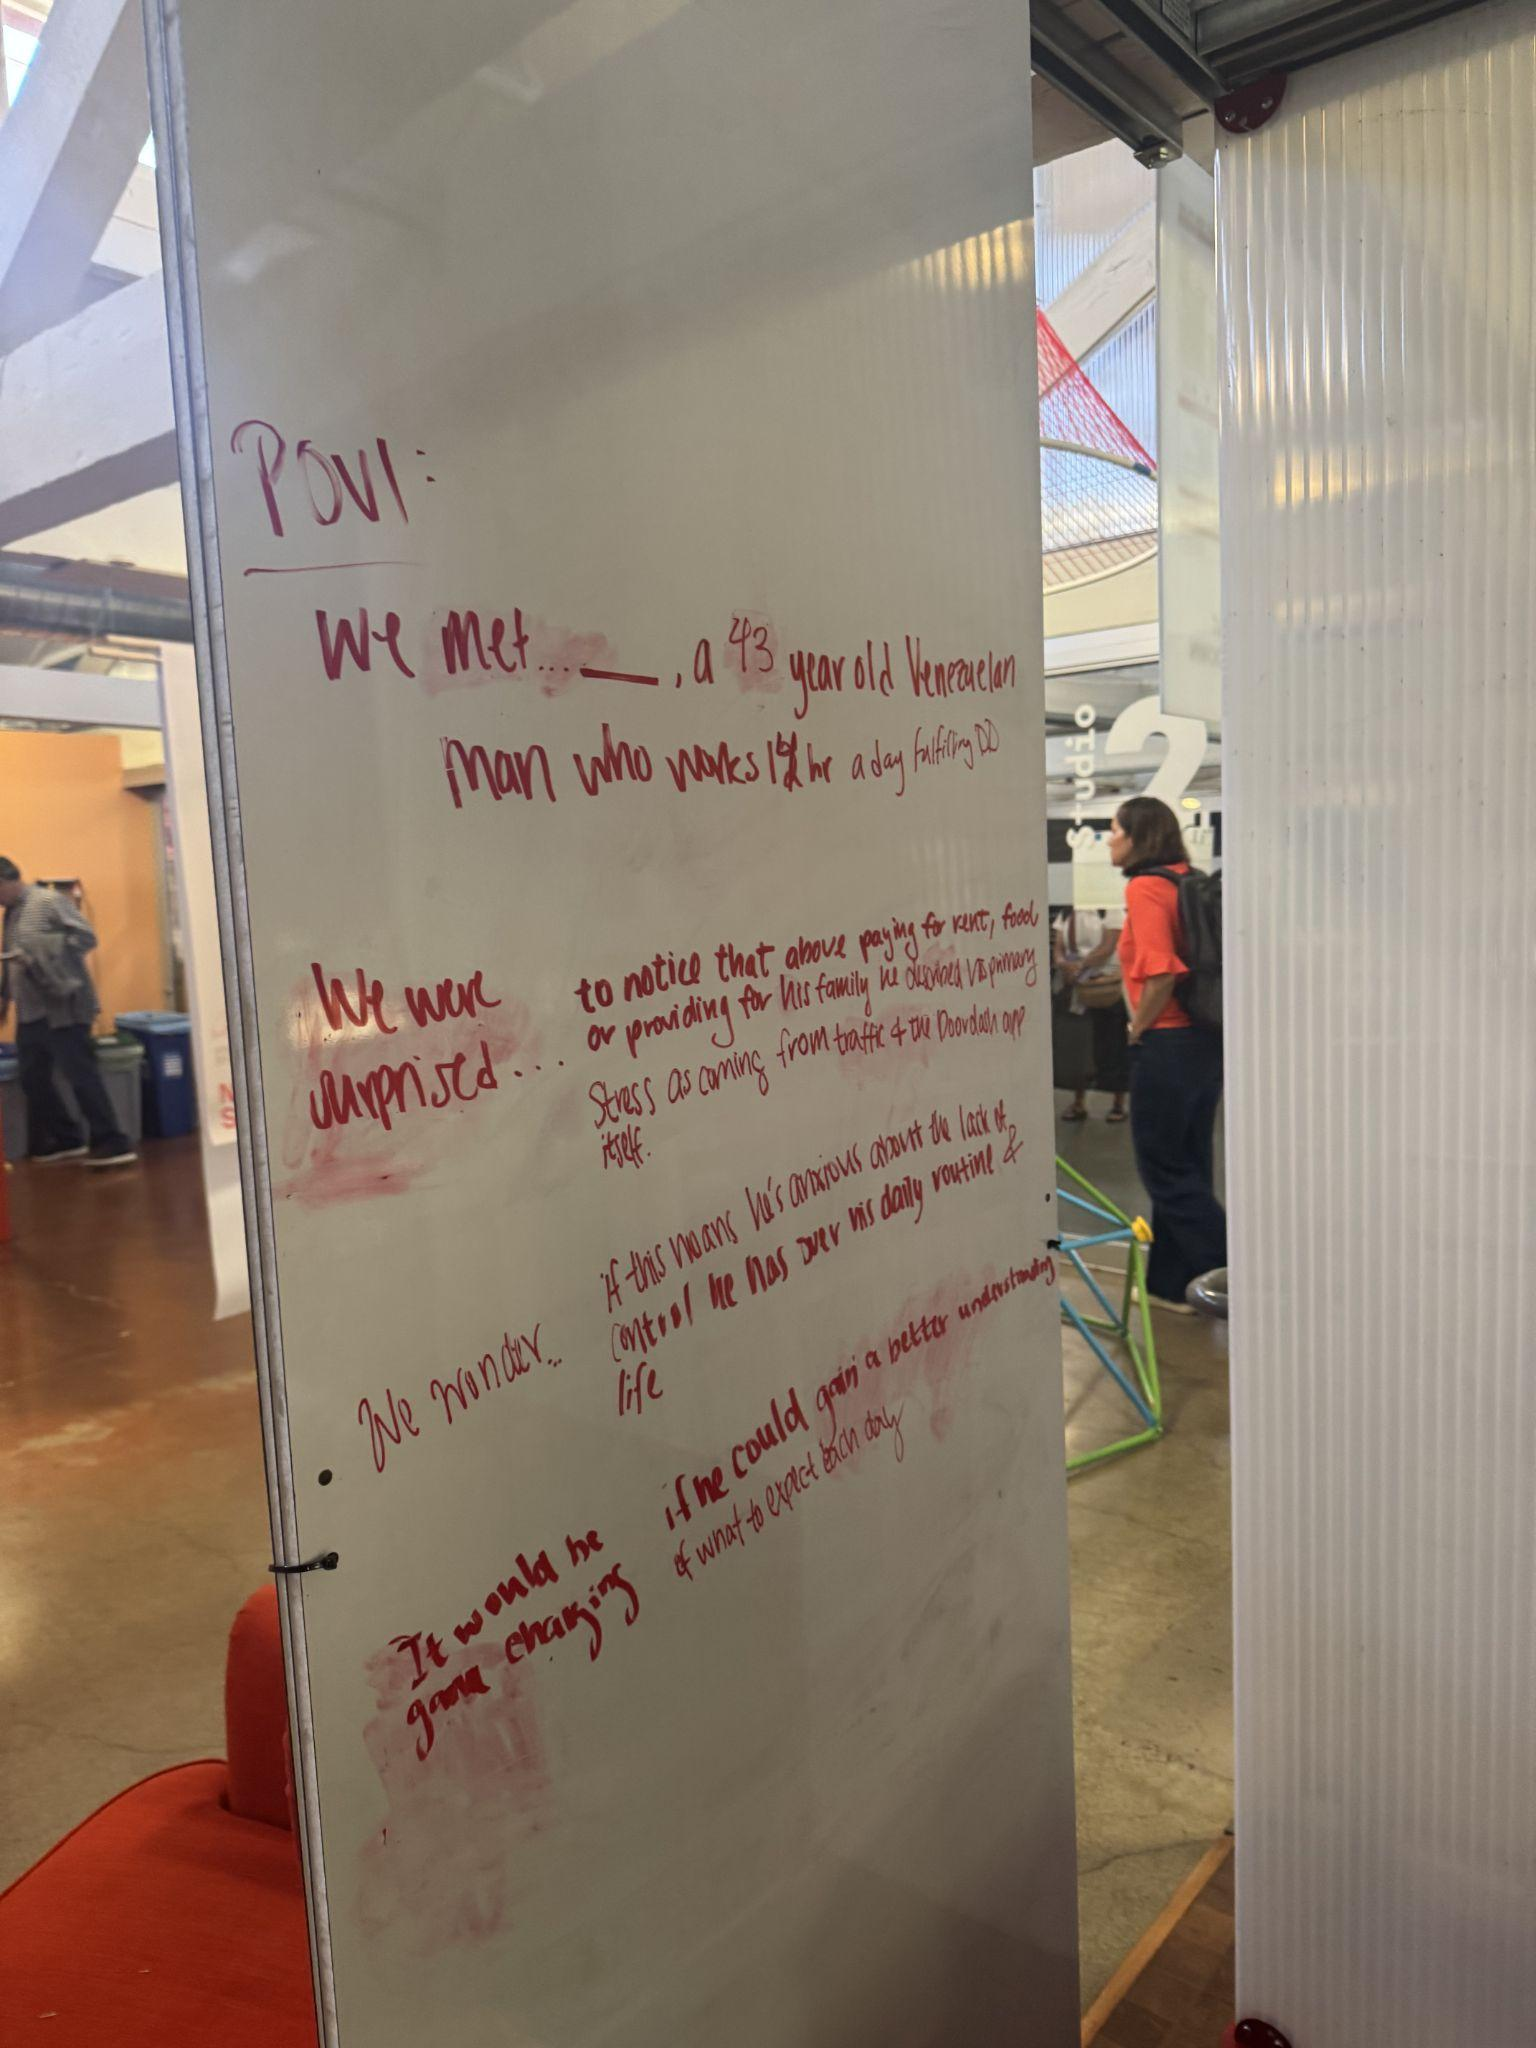 POV1:
We met.... ___, a 43 year old Venezuelan
man who works hr a day fulfilling DD
We were
surprised...
to notice that above paying for rent, food
or providing for his family he described his primary
stress as coming from traffic & the Doordash app
itself.
We wonder...
if this means he's anxious about the lack of
control he has over his daily routine &
life
It would be
game changing
if he could gain a better understanding
of what to expect each day
Studio
2